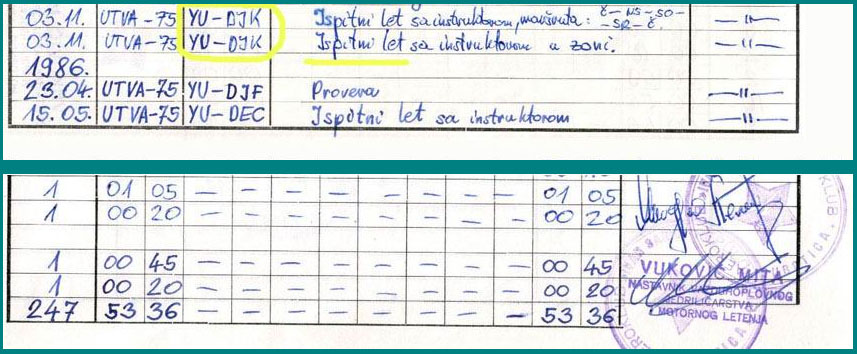 03.11. UTVA-75 YU-DJK Ispitni let sa instruktorom, maršruta: Č-NS-SO- —॥—
-SR-Č.
03.11. UTVA-75 YU-DJK Ispitni let sa instruktorom u zoni. —॥—
1986.
23.04. UTVA-75 YU-DJF Provera —॥—
15.05. UTVA-75 YU-DEC Ispitni let sa instruktorom —॥—
1 01 05 — — — — — — — — 01 05
1 00 20 — — — — — — — — 00 20
1 00 45 — — — — — — — — 00 45
1 00 20 — — — — — — — — 00 20
247 53 36 — — — — — — — — 53 36
VUKOVIĆ MITA
NASTAVNIK VAZDUHOPLOVNOG
JEDRILIČARSTVA
I MOTORNOG LETENJA